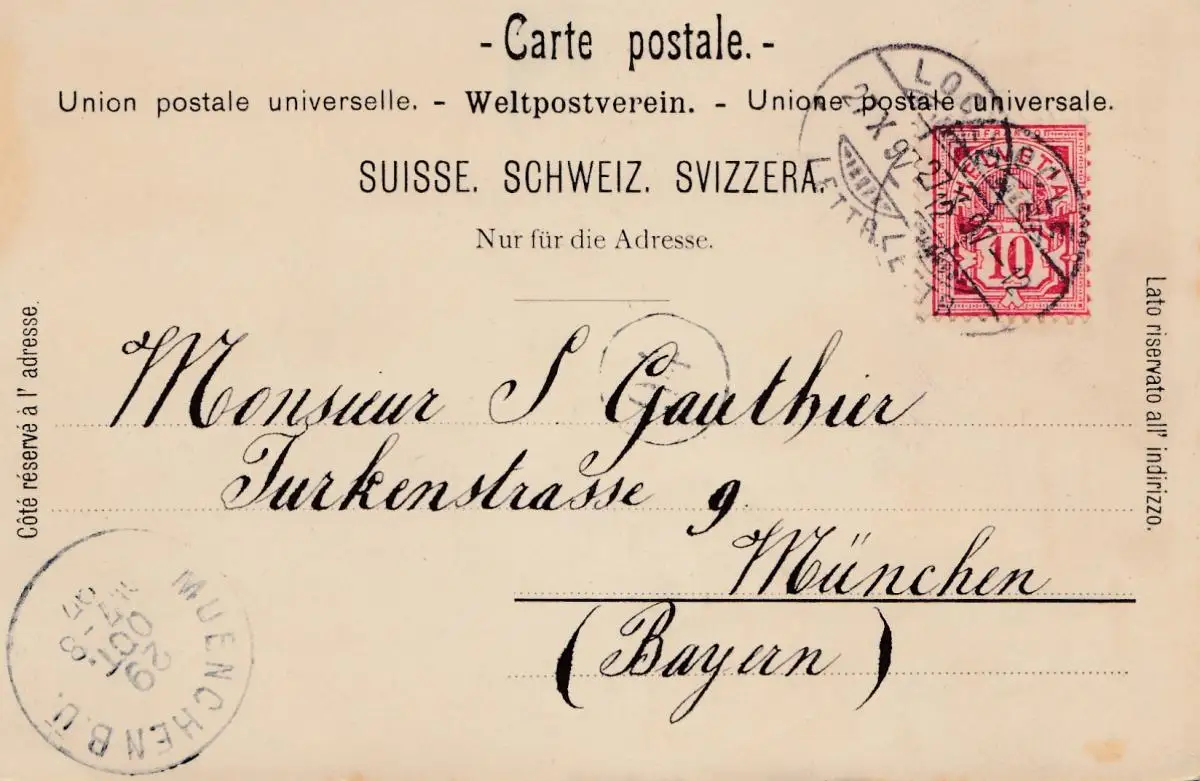 - Carte postale. -
Union postale universelle. - Weltpostverein. - Unione postale universale.
SUISSE. SCHWEIZ. SVIZZERA.
Nur für die Adresse.
10
Côté réservé à l' adresse.
Lato riservato all' indirizzo.
Monsieur S Gauthier
Turkenstrasse 9
München
(Bayern)
MUENCHEN B.Ü.
29
OCT
7-8
97